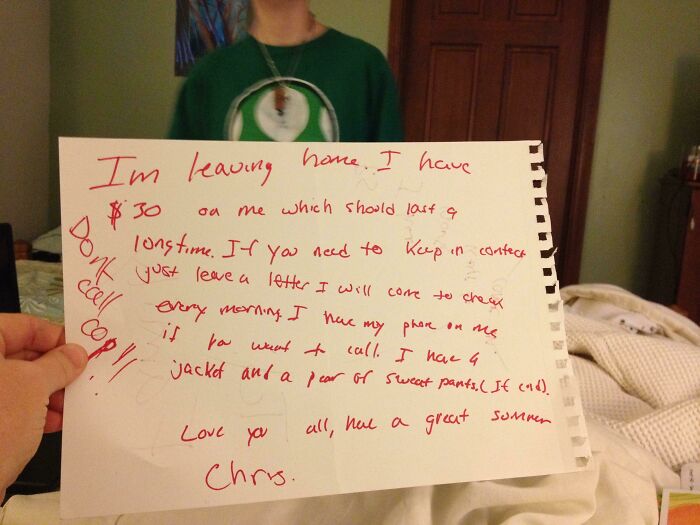 Im leaving home. I have
$30 on me which should last a
longtime. If you need to keep in contect
just leave a letter I will come to check
every morning I have my phone on me
if you want to call. I have a
jacket and a pear of sweat pants. (If cold).
Love you all, have a great summer
Chris.
Dont
call
cops!!!